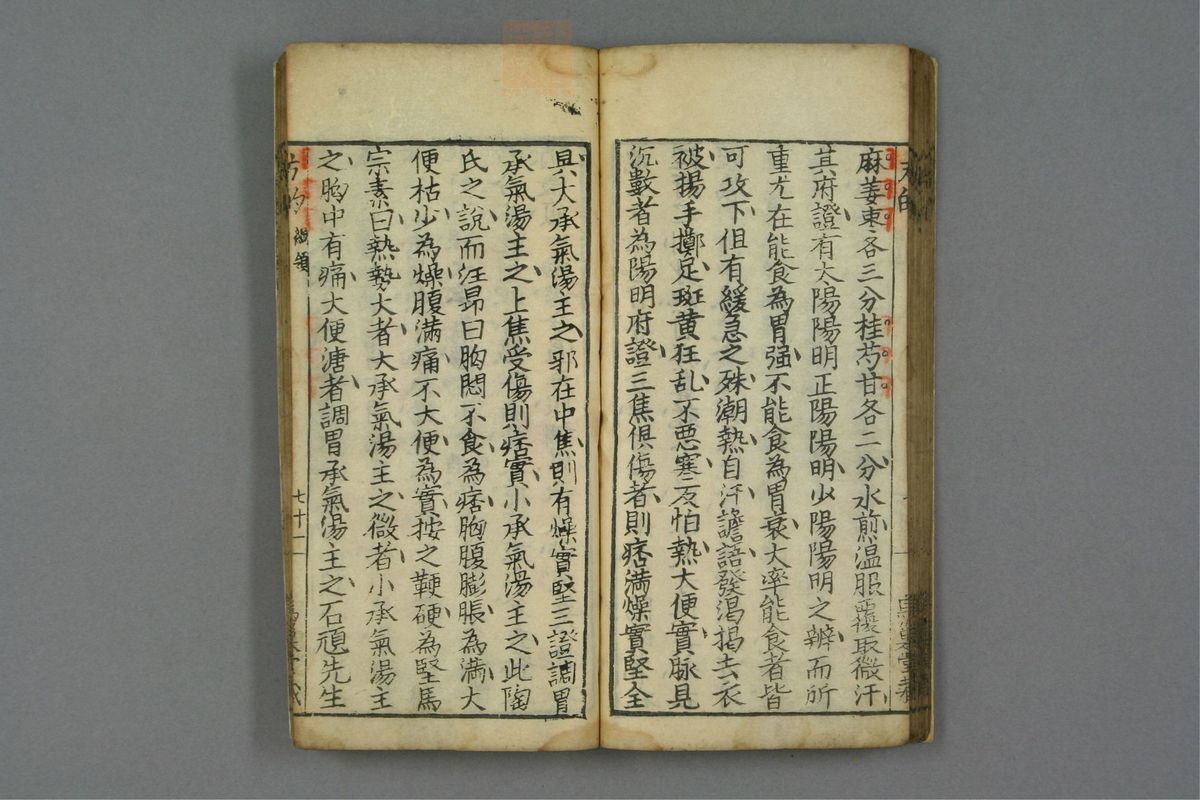 麻姜棗各三分桂芍甘各二分水煎温服覆取微汗
其府證有太陽陽明正陽陽明少陽陽明之辨而所
重尤在能食為胃强不能食為胃衰大率能食者皆
可攻下但有緩急之殊潮熱自汗譫語發渴揭去衣
被揚手擲足斑黄狂乱不悪寒反怕熱大便實脉見
沉數者為陽明府證三焦俱傷者則痞満燥實堅全
具大承氣湯主之邪在中焦則有燥實堅三證調胃
承氣湯主之上焦受傷則痞實小承氣湯主之此陶
氏之説而汪昂曰胸悶不食為痞胸腹膨脹為満大
便枯少為燥腹满痛不大便為實按之鞕硬為堅馬
宗素曰熱勢大者大承氣湯主之微者小承氣湯主
之胸中有痛大便溏者調胃承氣湯主之石頑先生
方的
綱領
七十一